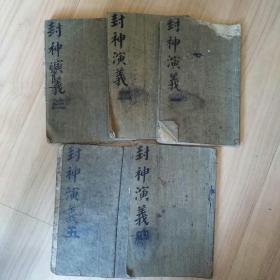 封神演義三
封神演義二
封神演義一
封神演義五
封神演義四